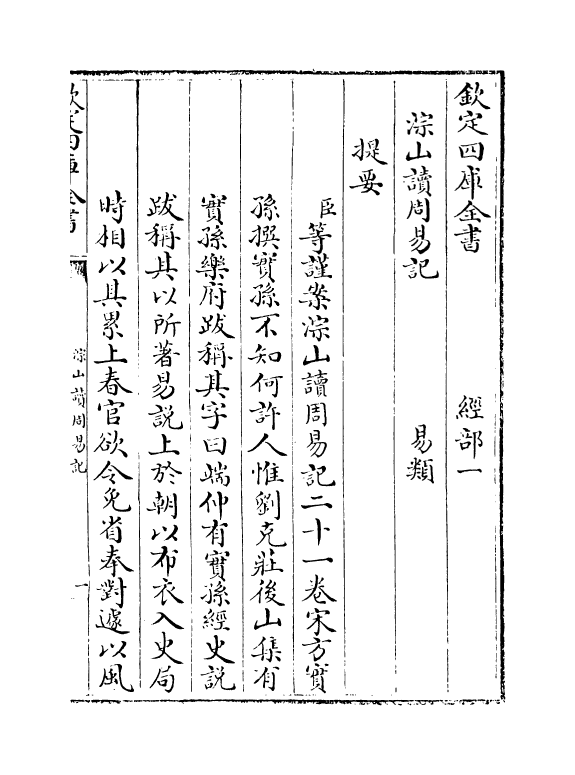 欽定四庫全書　　　經部一
淙山讀周易記　　　易類
提要
臣等謹案淙山讀周易記二十一卷宋方實
孫撰實孫不知何許人惟劉克莊後山集有
實孫樂府跋稱其字曰端仲有實孫經史說
跋稱其以所著易說上於朝以布衣入史局
時相以其累上春官欲令免省奉對遽以風
欽定四庫全書
淙山讀周易記
一